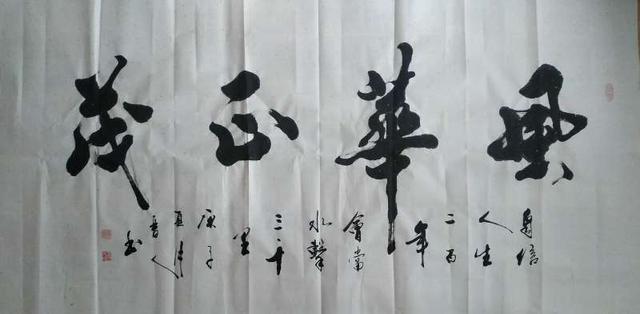 風華正茂
自信
人生
二百
年
會當
水擊
三千
里
庚子
夏月
书